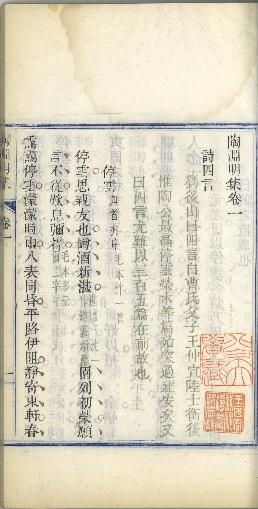 陶淵明集卷一
詩四言
劉後山曰四言自曹氏父子王仲宣陸士衡後
惟陶公最高停雲榮木等篇殆突過建安矣又
曰四言尤難以三百五篇在前故也
停雲
停雲思親友也罇酒新湛園列初榮願
言不從歎息彌襟
靄靄停雲濛濛時雨八表同昏平路伊阻靜寄東軒春